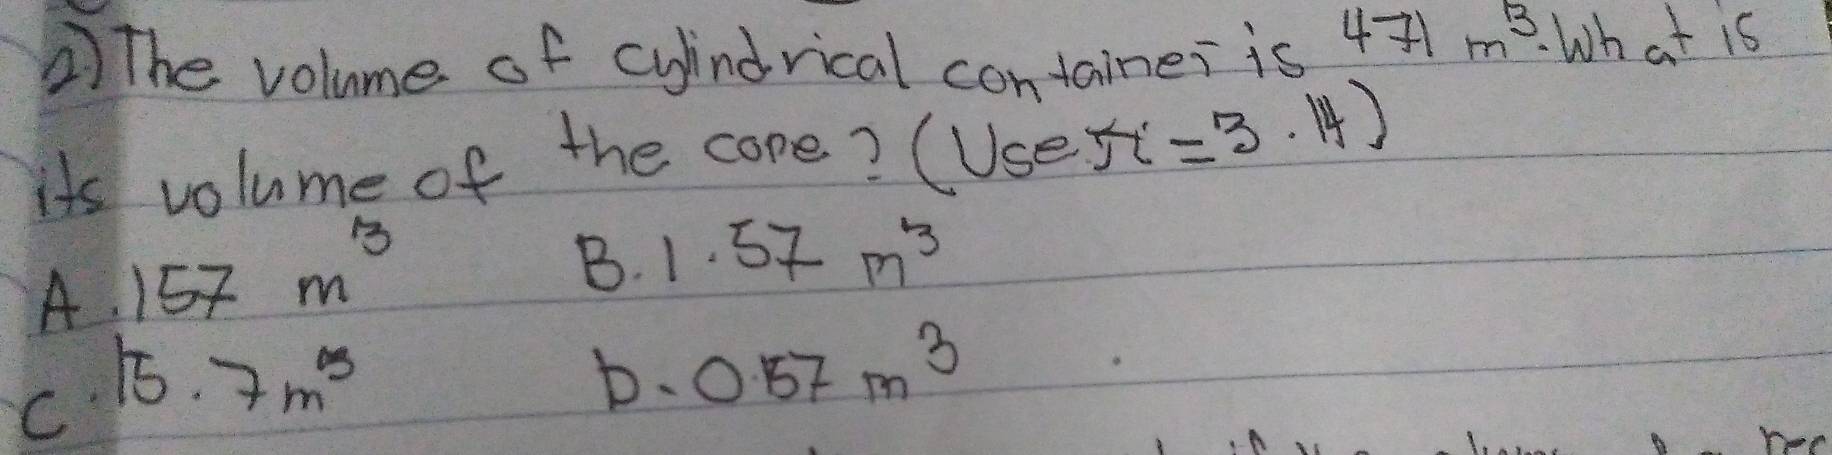 2) The volume of cylindrical container is 471 m³. What is
its volume of the cone? (Use π = 3.14)
A. 157 m³ B. 1.57 m³
C. 15.7 m³ D. 0.157 m³